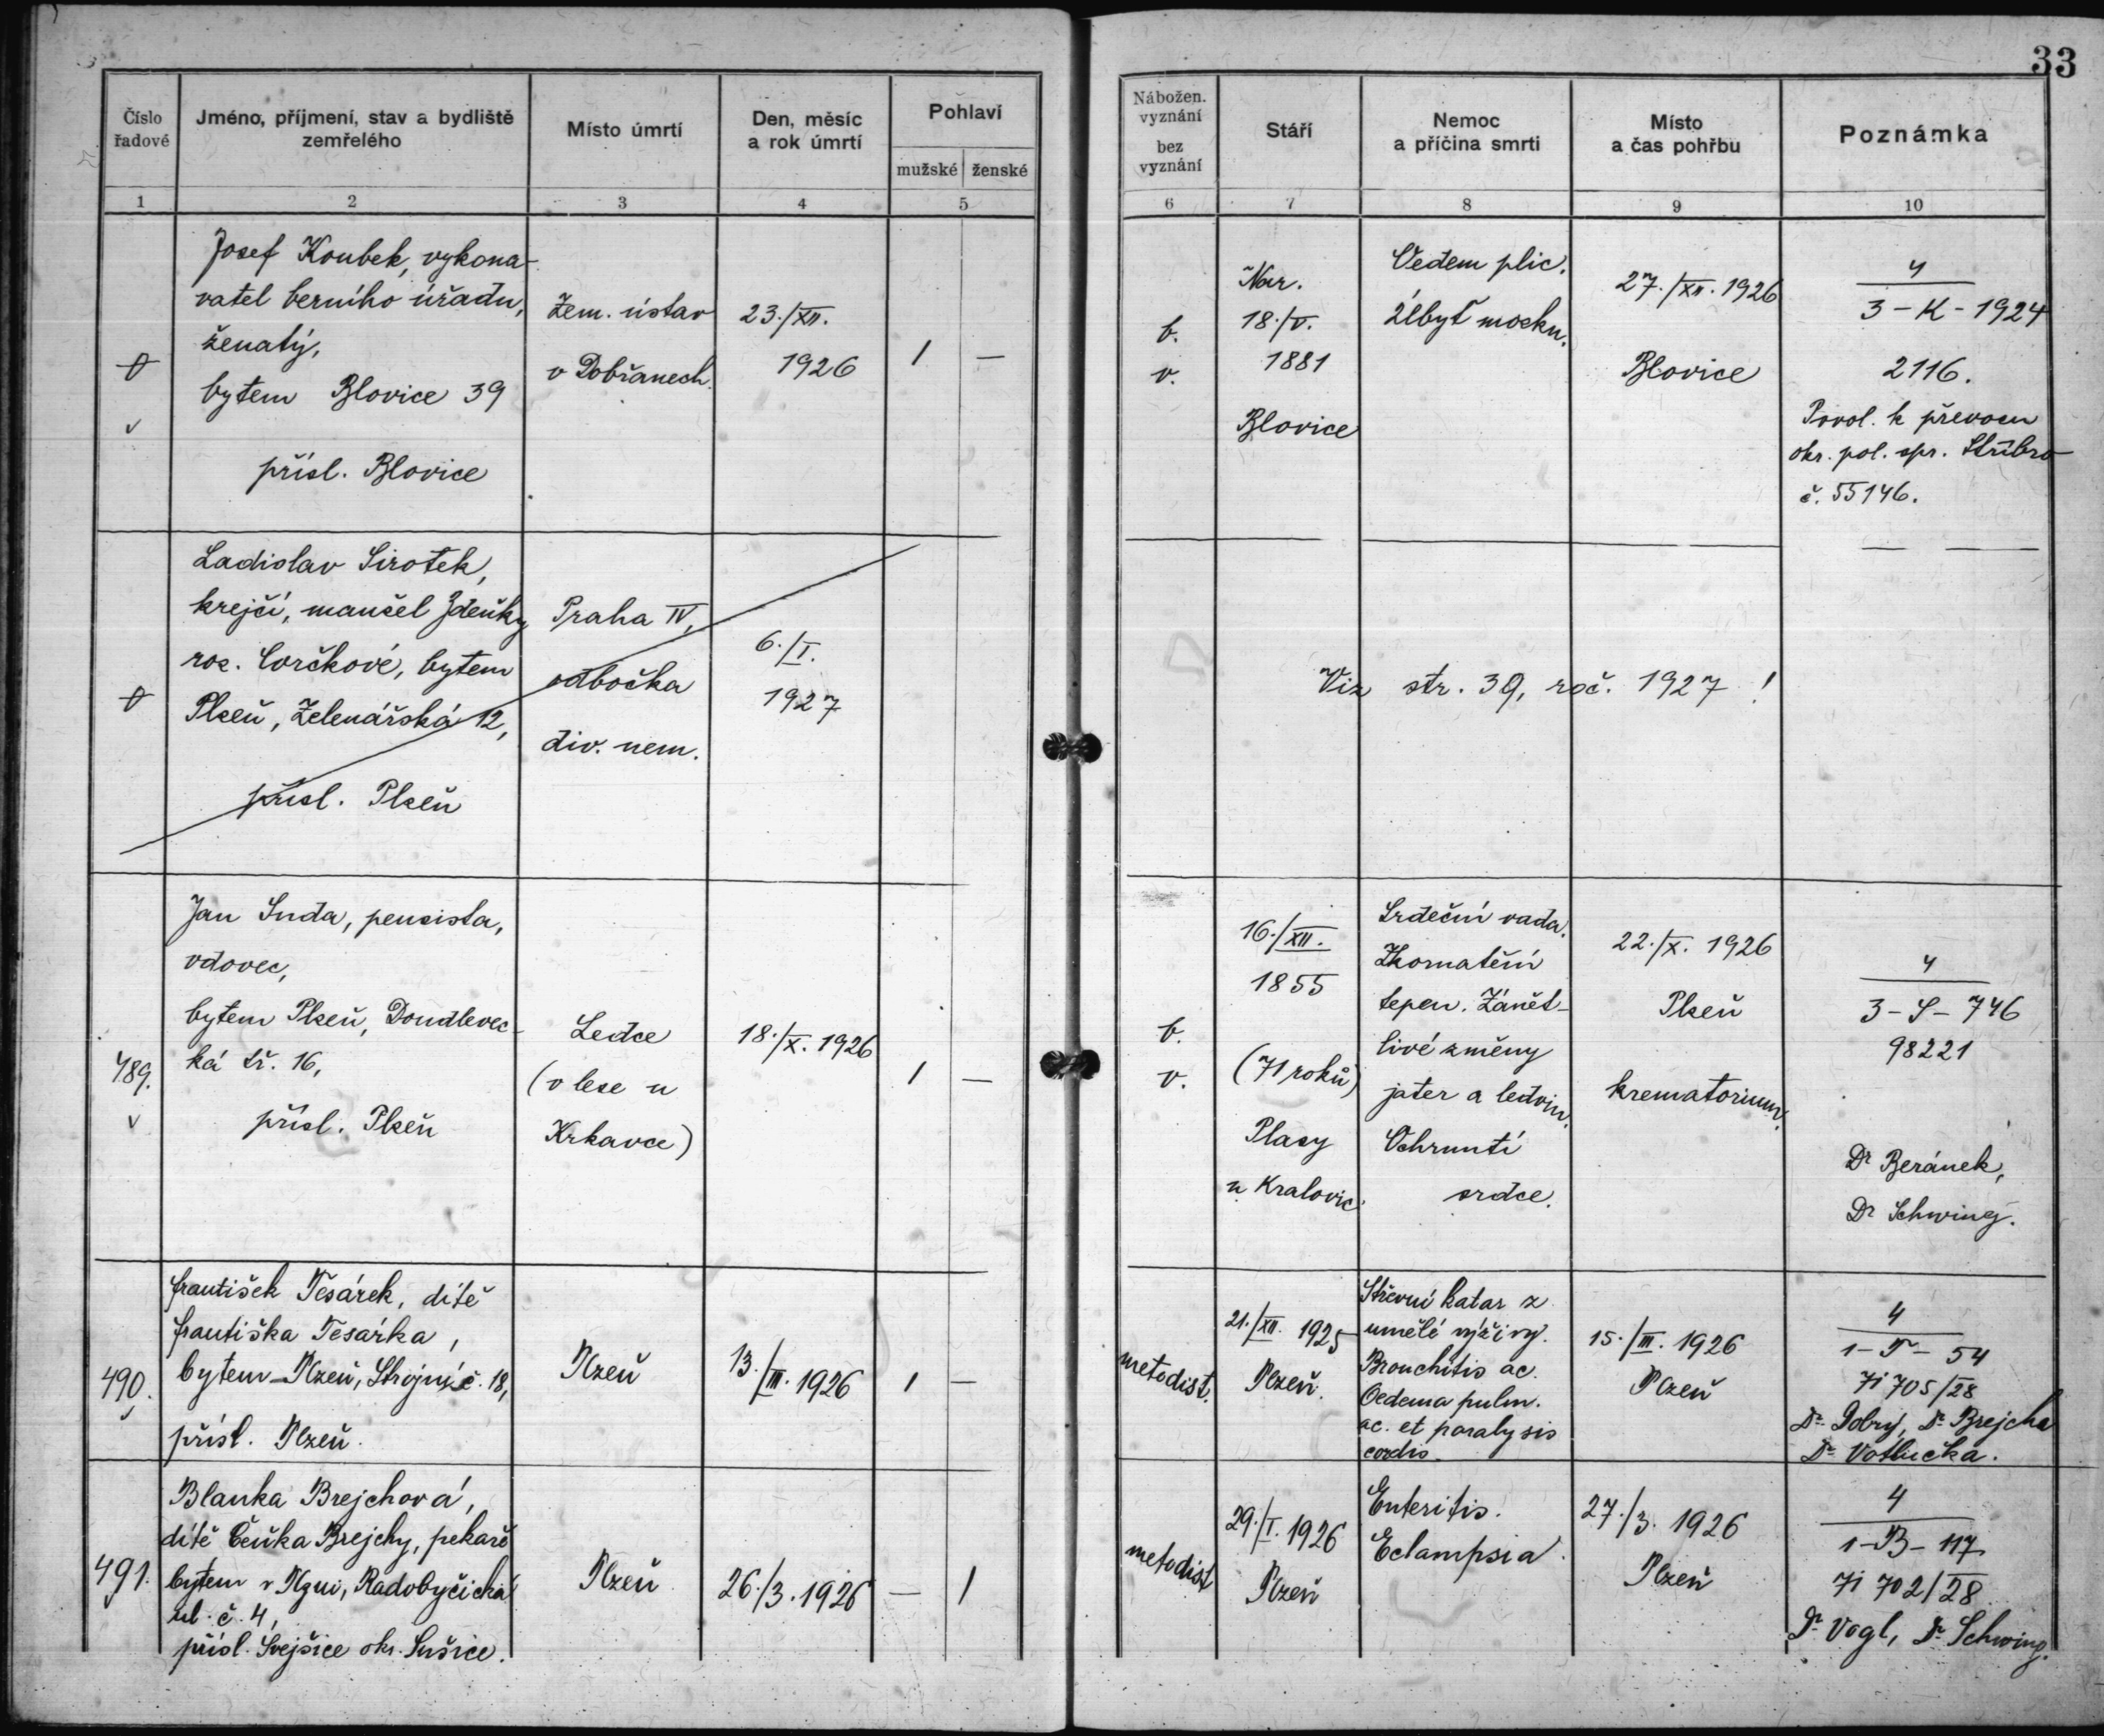 33
Číslo
řadové
Jméno, příjmení, stav a bydliště
zemřelého
Místo úmrtí
Den, měsíc
a rok úmrtí
Pohlaví
mužské
ženské
Nábožen.
vyznání
bez
vyznání
Stáří
Nemoc
a příčina smrti
Místo
a čas pohřbu
Poznámka
1
2
3
4
5
6
7
8
9
10
Josef Koubek, vykona-
vatel berního úřadu,
ženatý,
bytem Blovice 39
přísl. Blovice
Zem. ústav
v Dobřanech.
23./XII.
1926
1 —
b.
v.
Nar.
18./V.
1881
Blovice
Oedem plic.
Zbytn. mozku.
27./XII. 1926
Blovice
4
3-K-1924
2116.
Povol. k převozu
okr. pol. spr. Stříbro
č. 55146.
Ladislav Sirotek,
krejčí, manžel Zdeňky
roz. Corčkové, bytem
Plzeň, Zelenářská 12,
přísl. Plzeň
Praha IV,
odbočka
div. nem.
6./I.
1927
Viz str. 39, roč. 1927 !
489.
v
Jan Suda, pensista,
vdovec,
bytem Plzeň, Doudlevec-
ká tř. 16,
přísl. Plzeň
Ledce
(v lese u
Krkavce)
18./X. 1926
1 —
b.
v.
16./XII.
1855
(71 roků)
Plasy
u Kralovic.
Srdeční vada.
Zkornatění
tepen. Zánět-
livé změny
jater a ledvin.
Ochrnutí
srdce.
22./X. 1926
Plzeň
krematorium.
4
3-S-746
98221
Dr Beránek,
Dr Schwing.
490.
František Tesárek, dítě
Františka Tesárka,
bytem Plzeň, Strojní č. 18,
přísl. Plzeň.
Plzeň
13./III. 1926
1 —
metodist.
21./XII. 1925
Plzeň.
Střevní katar z
umělé výživy.
Bronchitis ac.
Oedema pulm.
ac. et paralysis
cordis.
15./III. 1926
Plzeň
4
1-T-54
71705/28
Dr Dobrý, Dr Brejcha
Dr Votlučka.
491.
Blanka Brejchová,
dítě Čeňka Brejchy, pekaře
bytem v Plzni, Radobyčická
ul. č. 4,
přísl. Svejšice okr. Sušice.
Plzeň
26./3. 1926
— 1
metodist
29./I. 1926
Plzeň
Enteritis.
Eclampsia.
27./3. 1926
Plzeň
4
1-B-117
71702/28
Dr Vogl, Dr Schwing.